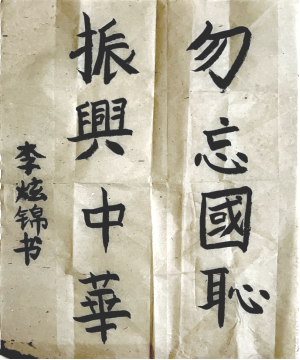 勿忘國恥
振興中華
李炫锦书